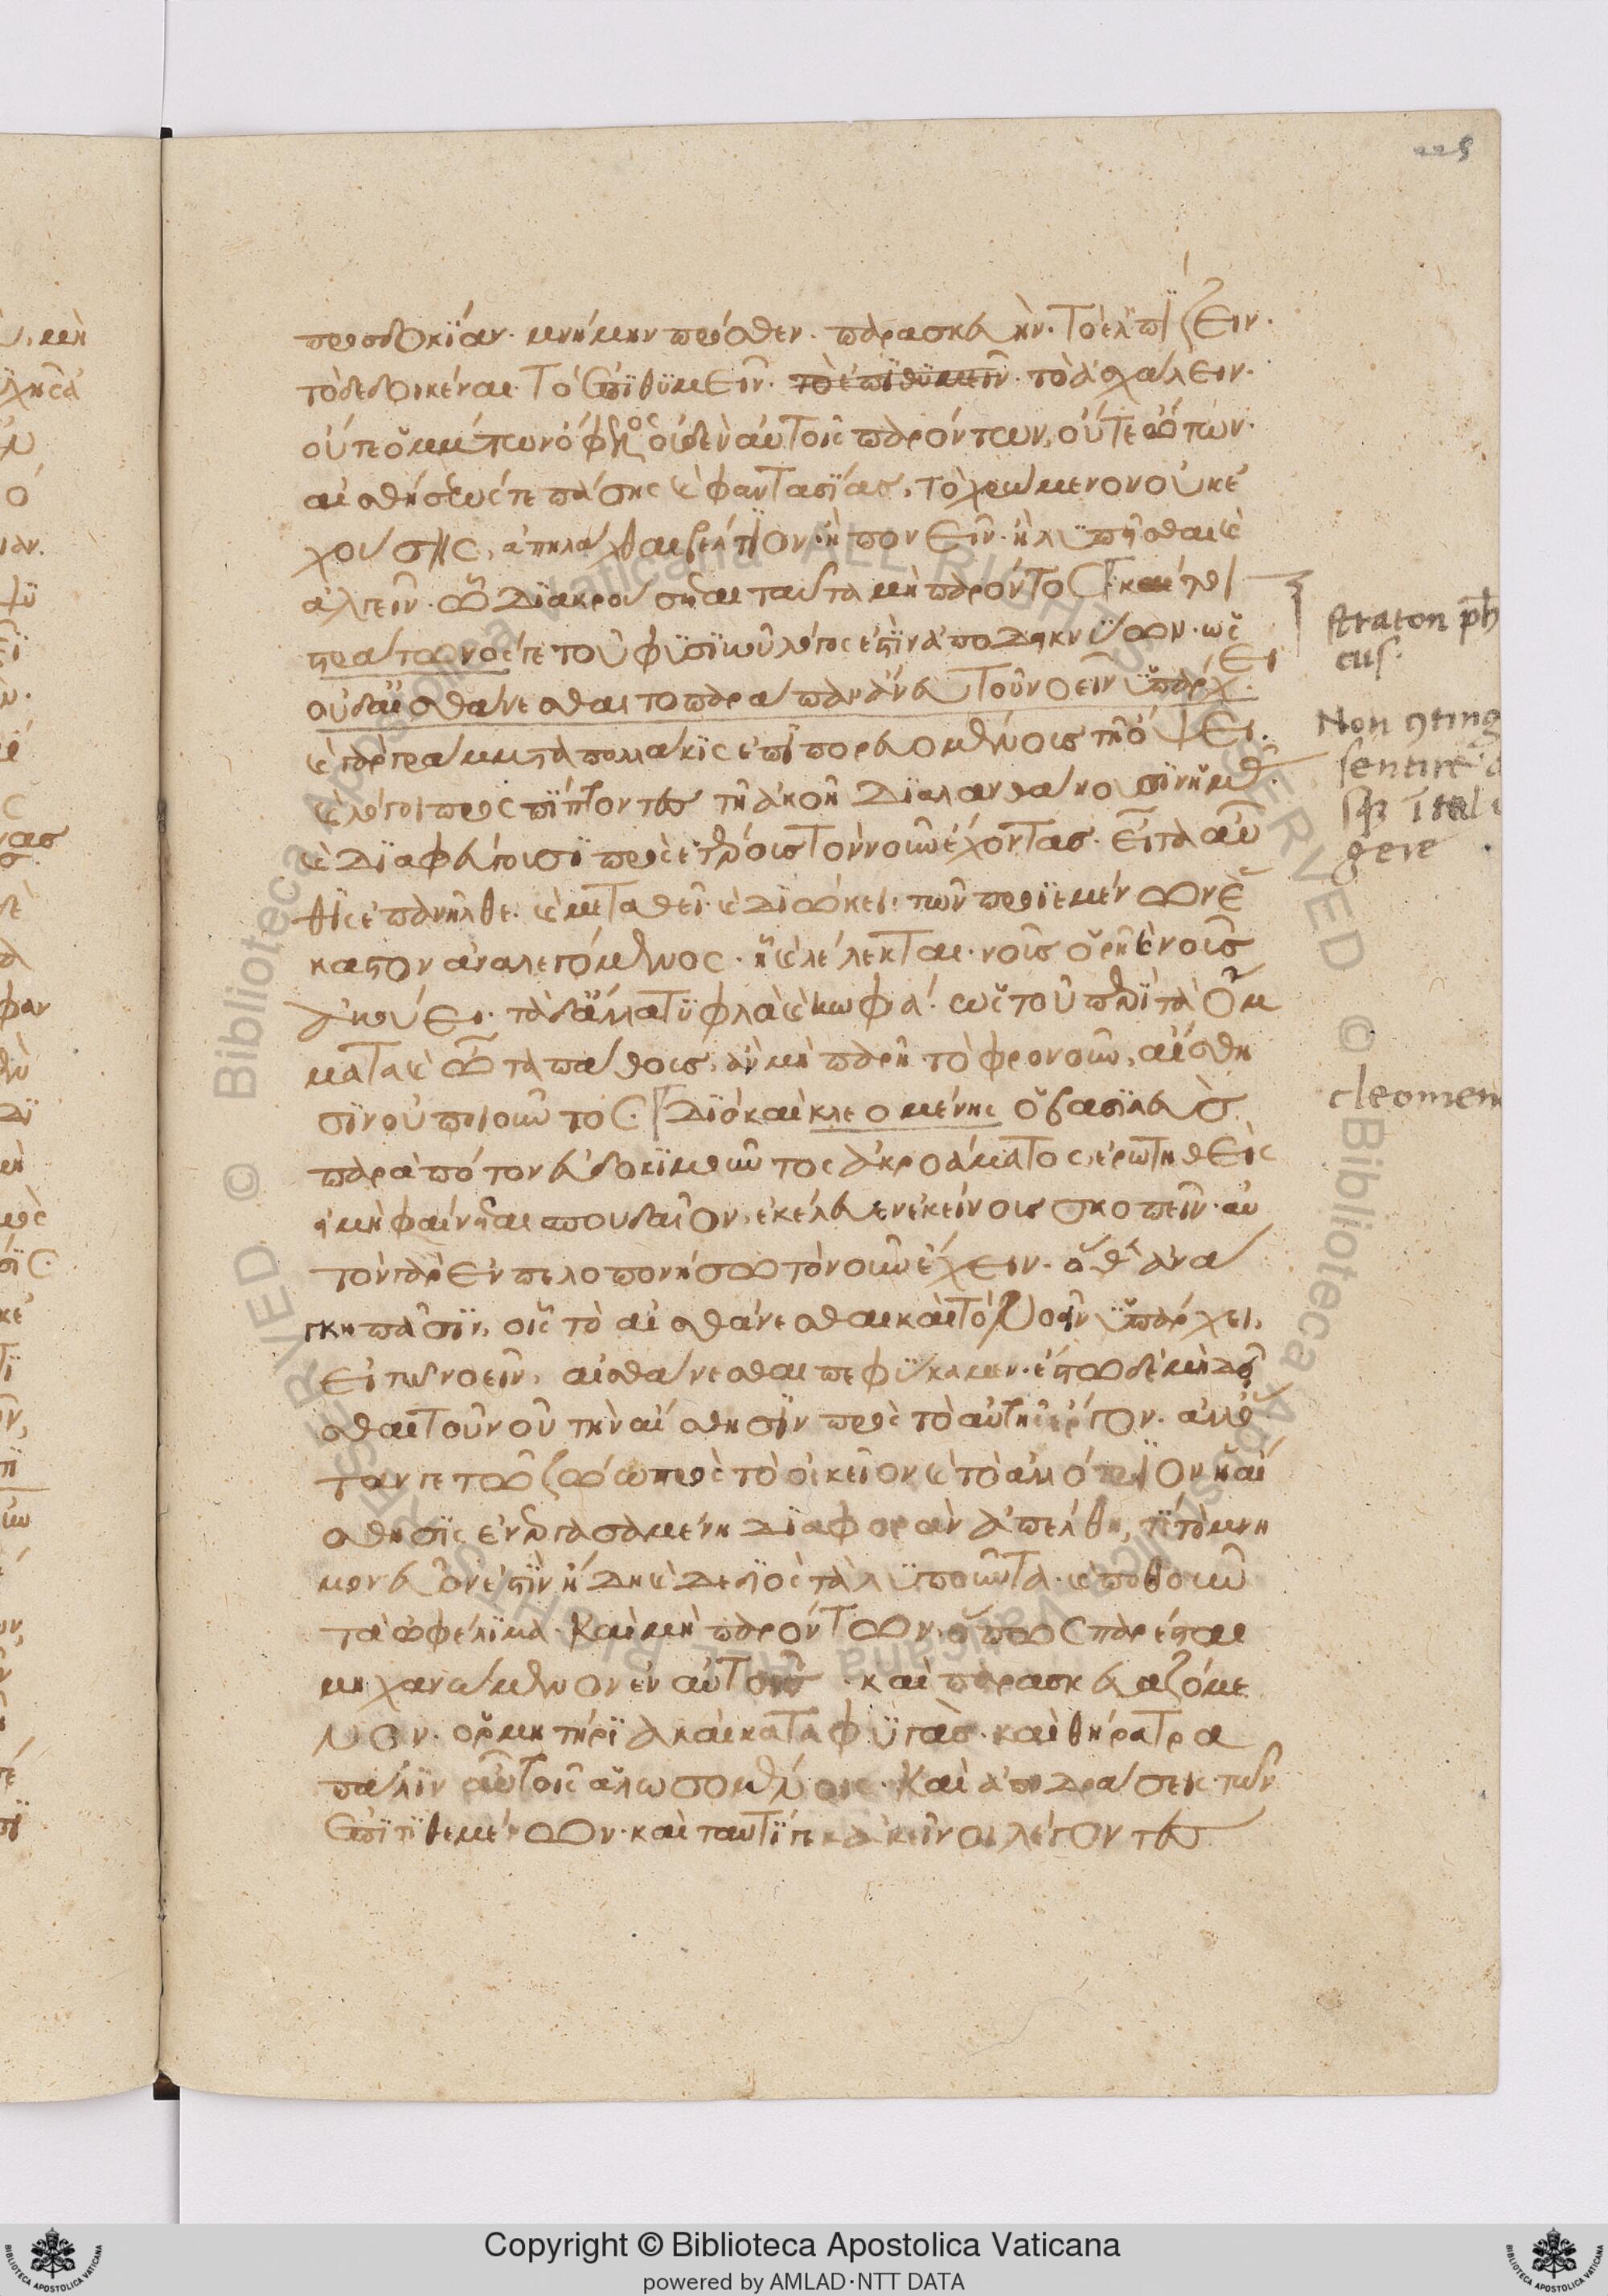 225
προσδοκίαν· μνήμην πρόθεσιν· παρασκευὴν· τὸ ἐλπίζειν·
τὸ δεδοικέναι· τὸ ἐπιθυμεῖν· τὸ ἐπιθυμεῖν· τὸ ἀσχάλλειν·
οὔτε ὀμμάτων ὄφελος οὐδὲν αὐτοῖς παρόντων, οὔτε ὤτων·
αἰσθήσεώς τε πάσης καὶ φαντασίας, τὸ χρώμενον οὐκ ἐ
χούσης, ἀπηλλάχθαι βέλτιον· ἢ πονεῖν· ἢ λυπεῖσθαι καὶ
ἀλγεῖν· ὧ διακρούσηται ταῦτα μὴ παρόντος· καίτοι
στράτωνός γε τοῦ φυσικοῦ λόγος ἐστὶν ἀποδεικνύων· ὡς
οὐδ' αἰσθάνεσθαι τὸ παράπαν ἄνευ τοῦ νοεῖν ὑπάρχει·
καὶ γὰρ γράμματα πολλάκις ἐπιπορευομένους τῇ ὄψει·
καὶ λόγοι προσπίπτοντες τῇ ἀκοῇ διαλανθάνουσιν ἡμᾶς·
καὶ διαφεύγουσι πρὸς ἑτέροις τὸν νοῦν ἔχοντας· εἶτα αὖ
θις ἐπανῆλθε· καὶ μεταθεῖ· καὶ διώκει· τῶν προϊεμένων ἕ
καστον ἀναλεγόμενος· ἧ καὶ λέλεκται· νοῦς ὁρῇ καὶ νοῦς
ἀκούει· τὰ δ' ἄλλα τυφλὰ καὶ κωφά· ὡς τοῦ περὶ τὰ ὄμ
ματα καὶ ὦτα πάθους, ἂν μὴ παρῇ τὸ φρονοῦν, αἴσθη
σιν οὐ ποιοῦντος· διὸ καὶ κλεομένης ὁ βασιλεὺς
παρὰ πότον εὐδοκιμοῦντος ἀκροάματος, ἐρωτηθεὶς
εἰ μὴ φαίνεται σπουδαῖον, ἐκέλευεν ἐκείνους σκοπεῖν· αὐ
τὸν γὰρ ἐν πελοπονήσω τὸν νοῦν ἔχειν· ὅθεν ἀνά
γκη πᾶσιν, οἷς τὸ αἰσθάνεσθαι καὶ τὸ νοεῖν ὑπάρχει,
εἰ τῶ νοεῖν, αἰσθάνεσθαι πεφύκαμεν· ἔστω δὲ μὴ δεῖ
σθαι τοῦ νοῦ τὴν αἴσθησιν πρὸς τὸ αὑτῆς ἔργον· ἀλλ' ὅ
ταν γε τῶ ζώω πρὸς τὸ οἰκεῖον καὶ τὸ ἀλλότριον ἡ αἴ
σθησις ἐνεργασαμένη διαφορὰν ἀπέλθη, τί τὸ μνη
μονεῦον ἐστὶν ἤδη καὶ δεδιὸς τὰ λυποῦντα· καὶ ποθοῦν
τὰ ὠφέλιμα· καὶ μὴ παρόντων, ὅπως παρέσται
μηχανώμενον ἐν αὐτοῖς· καὶ παρασκευαζόμε
νον· ὁρμητήρια καὶ καταφυγὰς· καὶ θήρατρα
πάλιν αὖ τοῖς ἁλωσομένοις· καὶ ἀποδράσεις τῶν
ἐπιτιθεμένων· καὶ ταυτί γε κἀκεῖνοι λέγοντες
straton ph
cus·
Non
sentire
gere
cleomen
Copyright © Biblioteca Apostolica Vaticana
powered by AMLAD·NTT DATA